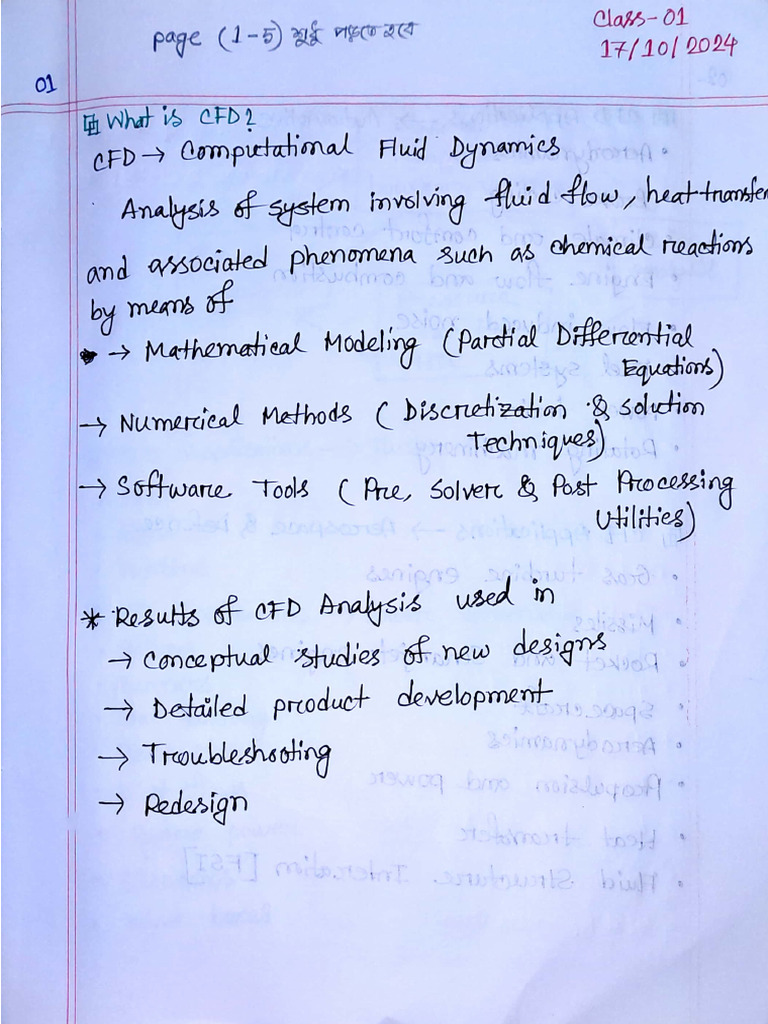 page (1-5) শুধু পড়তে হবে
Class-01
17/10/2024
01
What is CFD?
CFD → Computational Fluid Dynamics
Analysis of system involving fluid flow, heat transfer
and associated phenomena such as chemical reactions
by means of
→ Mathematical Modeling (Partial Differential
Equations)
→ Numerical Methods (Discretization & Solution
Techniques)
→ Software Tools (Pre, Solver & Post Processing
Utilities)
* Results of CFD Analysis used in
→ Conceptual studies of new designs
→ Detailed product development
→ Troubleshooting
→ Redesign